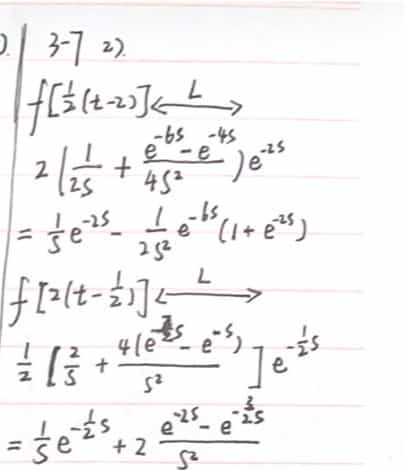 ). 3-7 2).
f[½(t-2)] <—L—>
2(1/2s + (e^-6s - e^-4s)/4s²)e^-2s
= 1/s e^-2s - 1/2s² e^-6s (1+e^-2s)
f[2(t-½)] <—L—>
½[2/s + 4(e^-s)/s²]e^-½s
= 1/s e^-½s + 2 (e^-2s - e^-3/2s)/s²